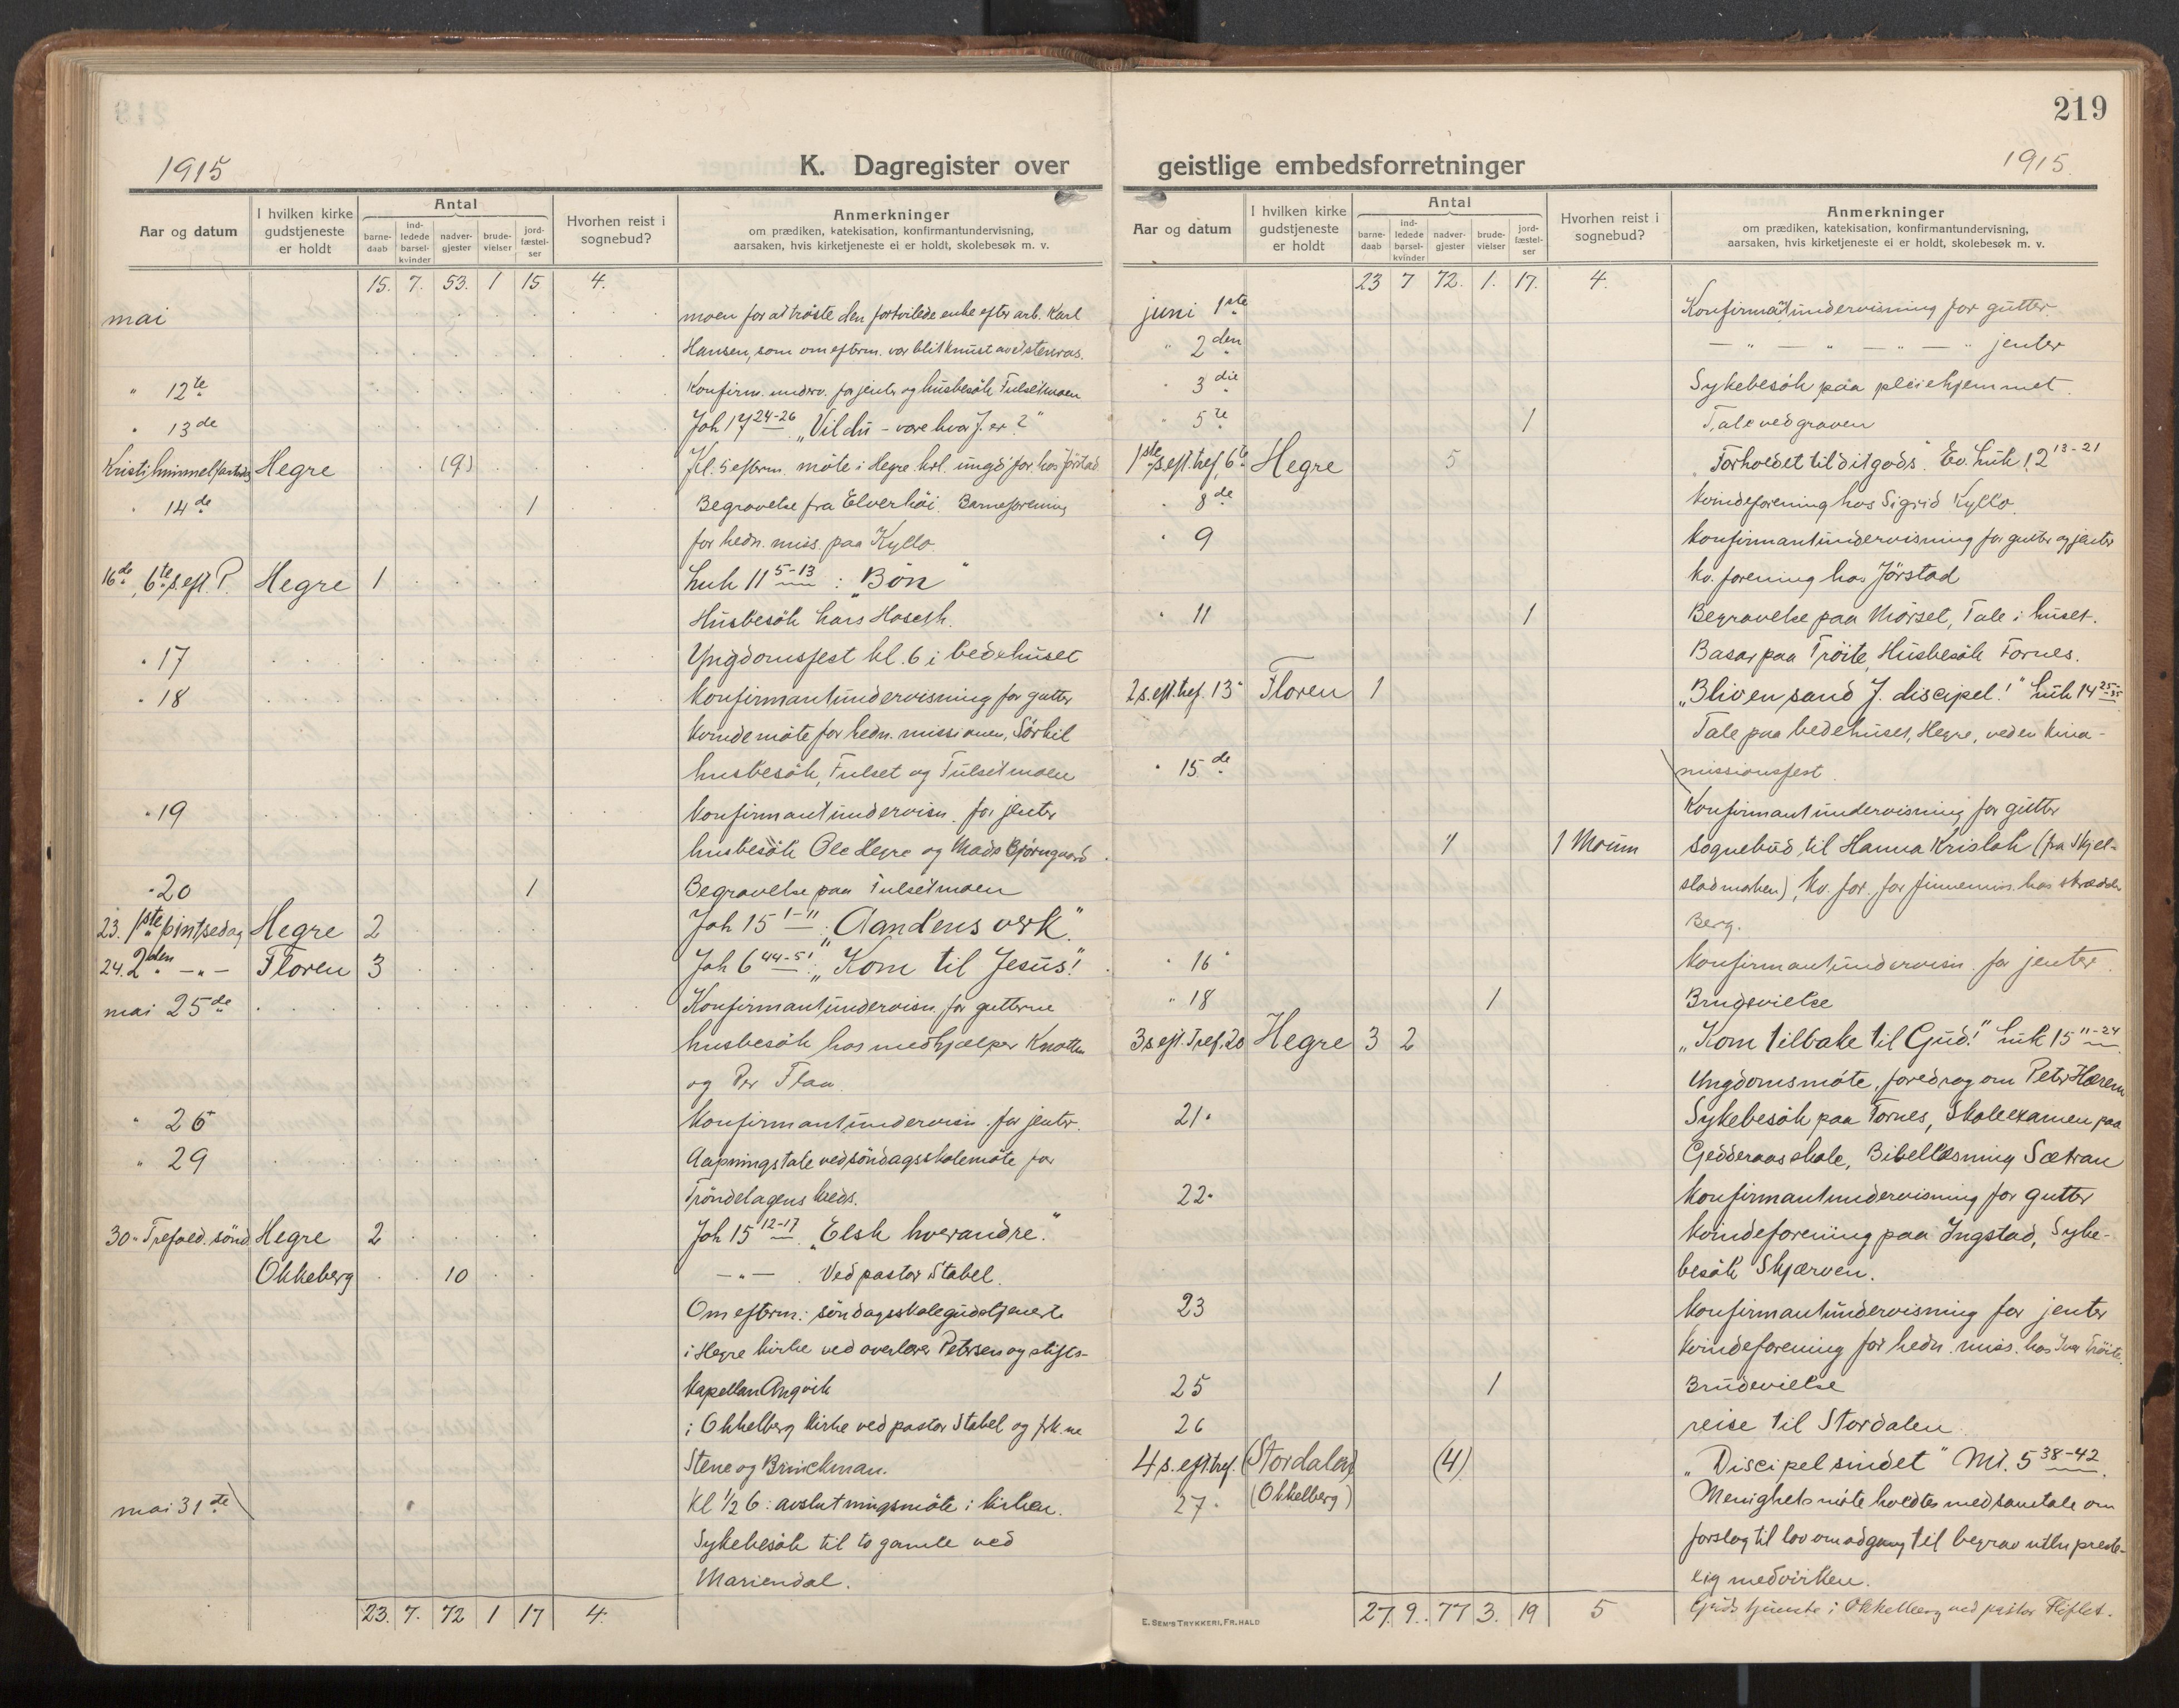 1915
K. Dagregister over
Aar og datum
I hvilken kirke gudstjeneste er holdt
Antal
barne-daab
ind-ledede barsel-kvinder
nadver-gjester
brude-vielser
jord-fæstel-ser
Hvorhen reist i sognebud?
Anmerkninger
om prædiken, katekisation, konfirmantundervisning,
aarsaken, hvis kirketjeneste ei er holdt, skolebesøk m. v.
15. 7. 53. 1 15 4.
mai moen for at trøste den fortvilede enke efter arb. Karl
Hansen, som om efterm. var blit knust av et stenras.
" 12te Konfirm. underv. for jenter og husbesøk Fulsetmoen
" 13de Joh 17 24-26 "Vil du - være hvor J. er?"
Kristi himmelfartsd. Hegre (9) Kl. 5 efterm. møte i Hegre krl. ungd. for. hos Jørstad
" 14de 1 Begravelse fra Elverhøi. Barneforening
for hedn. miss. paa Kyllo.
16de, 6te s. eft. P. Hegre 1 Luk 11 5-13: "Bøn"
Husbesøk Lars Hoseth.
" 17 Yngdomsfest kl. 6 i bedehuset
" 18 Konfirmantundervisning for gutter
Kvindemøte for hedn. missionen, Sørkil
husbesøk, Fulset og Fulsetmoen
" 19 Konfirmantundervisn. for jenter
husbesøk Ole Hegre og Mads Bjørngaard
" 20 1 Begravelse paa Fulsetmoen
23. 1ste pintsedag Hegre 2 Joh 15 1-11: "Aandens verk."
24. 2den -"- Floren 3 Joh 6 44-51: "Kom til Jesus!"
mai 25de Konfirmantundervisn. for gutterne
husbesøk hos medhjælper Knotten
og Per Flaa.
" 26 Konfirmantundervisn. for jenter.
" 29 Aapningstale ved søndagsskolemøte for
Trøndelagens kreds.
30. Trefold. sønd. Hegre 2 Joh 15 12-17. "Elsk hverandre."
Okkelberg 10 -"- . Ved pastor Stabel.
Om efterm.: søndagsskolegudstjeneste
i Hegre kirke ved overlærer Petersen og stifts-
kapellan Angvik
i Okkelberg kirke ved pastor Stabel og frk.ne
Stene og Brinchman.
mai 31te Kl ½ 6: avslutningsmøte i kirken.
Sykebesøk til to gamle ved
Mariendal.
23. 7. 72 1 17 4.
219
1915.
geistlige embedsforretninger
Aar og datum
I hvilken kirke gudstjeneste er holdt
Antal
barne-daab
ind-ledede barsel-kvinder
nadver-gjester
brude-vielser
jord-fæstel-ser
Hvorhen reist i sognebud?
Anmerkninger
om prædiken, katekisation, konfirmantundervisning,
aarsaken, hvis kirketjeneste ei er holdt, skolebesøk m. v.
23 7 72. 1. 17. 4.
juni 1ste Konfirmantundervisning for gutter.
" 2den - " - " - " - " jenter
" 3die Sykebesøk paa pleiehjemmet.
" 5te 1 Tale ved graven
1ste s. eft. tref. 6te Hegre 5 "Forholdet til dit gods". Ev. Luk 12 13-21
" 8de Kvindeforening hos Sigrid Kyllo.
" 9 Konfirmantundervisning for gutter og jenter
kv. forening hos Jørstad
" 11 1 Begravelse paa Mørset, Tale i huset.
Basar paa Trøite, Husbesøk Fornes.
2 s. eft. tref. 13" Floren 1 "Bliv en sand J. discipel!" Luk 14 25-35
Tale paa bedehuset, Hegre, ved en Kina-
" 15de missionsfest.
Konfirmantundervisning for gutter
1 1 Moum Sognebud til Hanna Krislok (fra Skjel-
stadmarken), kv. for. for finnemis. hos skrædder
Berg.
" 16" Konfirmantundervisn. for jenter.
" 18 1 Brudevielse
3 s. eft. Tref. 20 Hegre 3 2 "Kom tilbake til Gud!" Luk 15 11-24
Ungdomsmøte, foredrag om Peter Hærem
21. Sykebesøk paa Fornes, Skoleexamen paa
Gedderaas skole, Bibellæsning Sætran
22. Konfirmantundervisning for gutter
Kvindeforening paa Ingstad, Syke-
besøk Skjærven.
23 Konfirmantundervisning for jenter
Kvindeforening for hedn. miss. hos Iver Trøite.
25 1 Brudevielse
26 reise til Stordalen
4 s. eft. tref. (Stordalen) (4) "Discipelsindet" Mt. 5 38-42.
27. (Okkelberg) Menighetsmøte holdtes med samtale om
forslag til lov om adgang til begrav. uten preste-
lig medvirken.
27. 9. 77 3. 19 5 Gudstjeneste i Okkelberg ved pastor Fliflet.
E. SEM'S TRYKKERI, FR.HALD